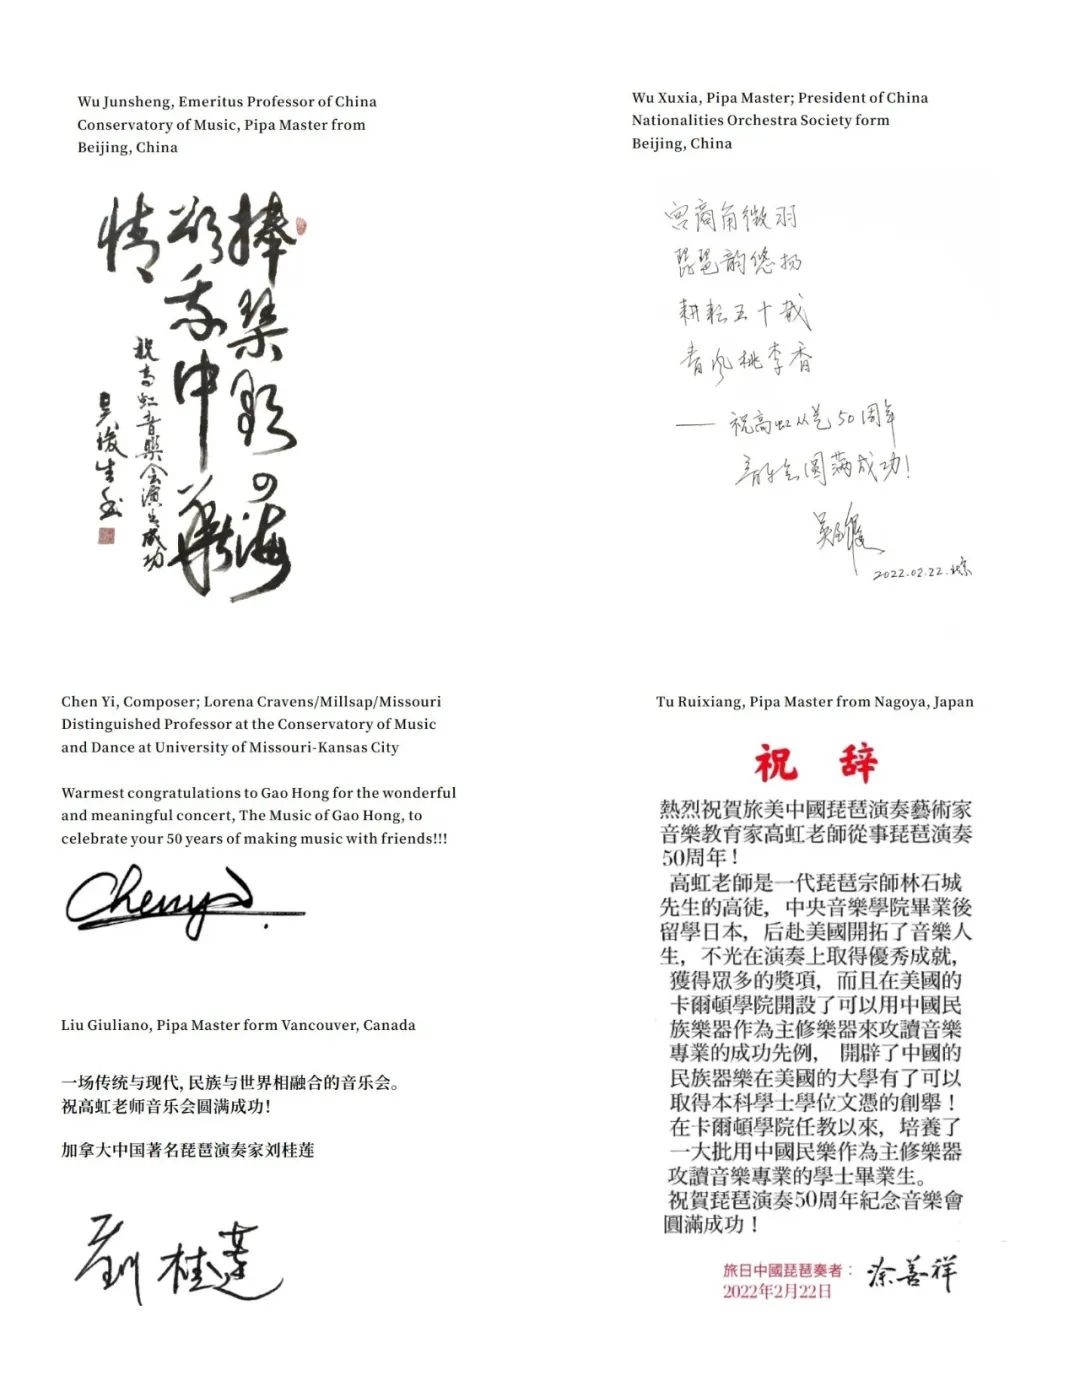 Wu Junsheng, Emeritus Professor of China
Conservatory of Music, Pipa Master from
Beijing, China
捧琴四海
颂我中華
情
祝高虹音樂会演出成功
吴俊生
Wu Xuxia, Pipa Master; President of China
Nationalities Orchestra Society form
Beijing, China
宫商角徵羽
琵琶韵悠扬
耕耘五十载
春风桃李香
—— 祝高虹从艺50周年
音乐会圆满成功!
吴玉霞
2022.02.22.北京
Chen Yi, Composer; Lorena Cravens/Millsap/Missouri
Distinguished Professor at the Conservatory of Music
and Dance at University of Missouri-Kansas City
Warmest congratulations to Gao Hong for the wonderful
and meaningful concert, The Music of Gao Hong, to
celebrate your 50 years of making music with friends!!!
Chen Yi
Liu Giuliano, Pipa Master form Vancouver, Canada
一场传统与现代, 民族与世界相融合的音乐会。
祝高虹老师音乐会圆满成功!
加拿大中国著名琵琶演奏家刘桂莲
劉桂蓮
Tu Ruixiang, Pipa Master from Nagoya, Japan
祝 辞
熱烈祝賀旅美中國琵琶演奏藝術家
音樂教育家高虹老師從事琵琶演奏
50周年！
高虹老師是一代琵琶宗師林石城
先生的高徒，中央音樂學院畢業後
留學日本，后赴美國開拓了音樂人
生，不光在演奏上取得優秀成就，
獲得眾多的獎項，而且在美國的
卡爾頓學院開設了可以用中國民
族樂器作為主修樂器來攻讀音樂
專業的成功先例， 開辟了中國的
民族器樂在美國的大學有了可以
取得本科學士學位文憑的創舉！
在卡爾頓學院任教以來，培養了
一大批用中國民樂作為主修樂器
攻讀音樂專業的學士畢業生。
祝賀琵琶演奏50周年紀念音樂會
圓滿成功！
旅日中國琵琶奏者： 涂善祥
2022年2月22日